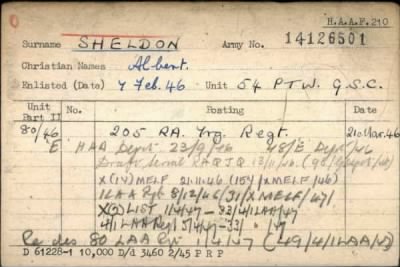 H.A.A.F. 210
Surname SHELDON Army No. 14126501
Christian Names Albert.
Enlisted (Date) 7 Feb. 46 Unit 54 P.T.W. G.S.C.
Unit Part II No. Posting Date
80/46 205 RA. Trg Regt. 21 Mar. 46
E HAA Depot 23/9/46 48/E Depot/46
Draft Serial RAQJQ 13/11/46.
X(14) MELF 21.11.46 (157/XMELF/46)
1 LAA Rgt 8/12/46/31/XMELF/47.
LIST 1/4/47 - 33/4/1LAA/47
4/1 LAA Regt 5/4/47 - 33/ " /47
Re des 80 LAA Rgt 1/4/47 (49/4/1LAA/47)
D 61228-1 10,000 D/d 3460 2/45 F R P